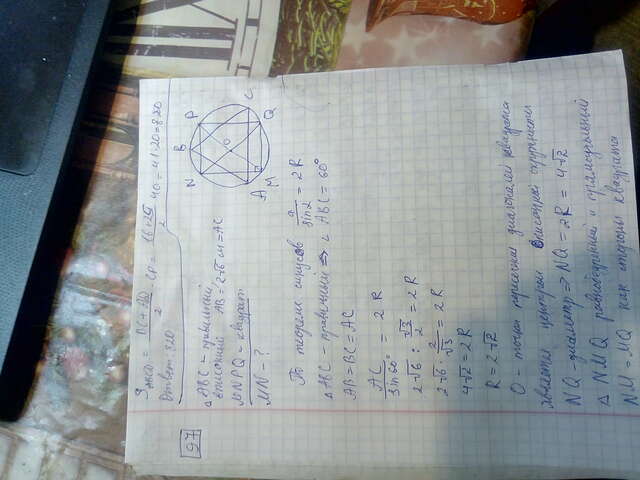 S_ABCD = (BC+AD)/2 · CP = (16+25)/2 · 40 = 41·20 = 820
Ответ: 820
97
△ABC – правильный,
вписанный AB = 2√6 см = AC
MNPQ – квадрат
MN – ?
N B P C Q M A O
По теореме синусов a/sin α = 2R
△ABC – правильный ⇒ ∠ABC = 60°
AB = BC = AC
AC/sin 60° = 2R
2√6 : √3/2 = 2R
2√6 · 2/√3 = 2R
4√2 = 2R
R = 2√2
O – точка пересечения диагоналей квадрата
является центром описанной окружности
NQ – диаметр ⇒ NQ = 2R = 4√2
△NMQ равнобедренный и прямоугольный
NM = MQ как стороны квадрата